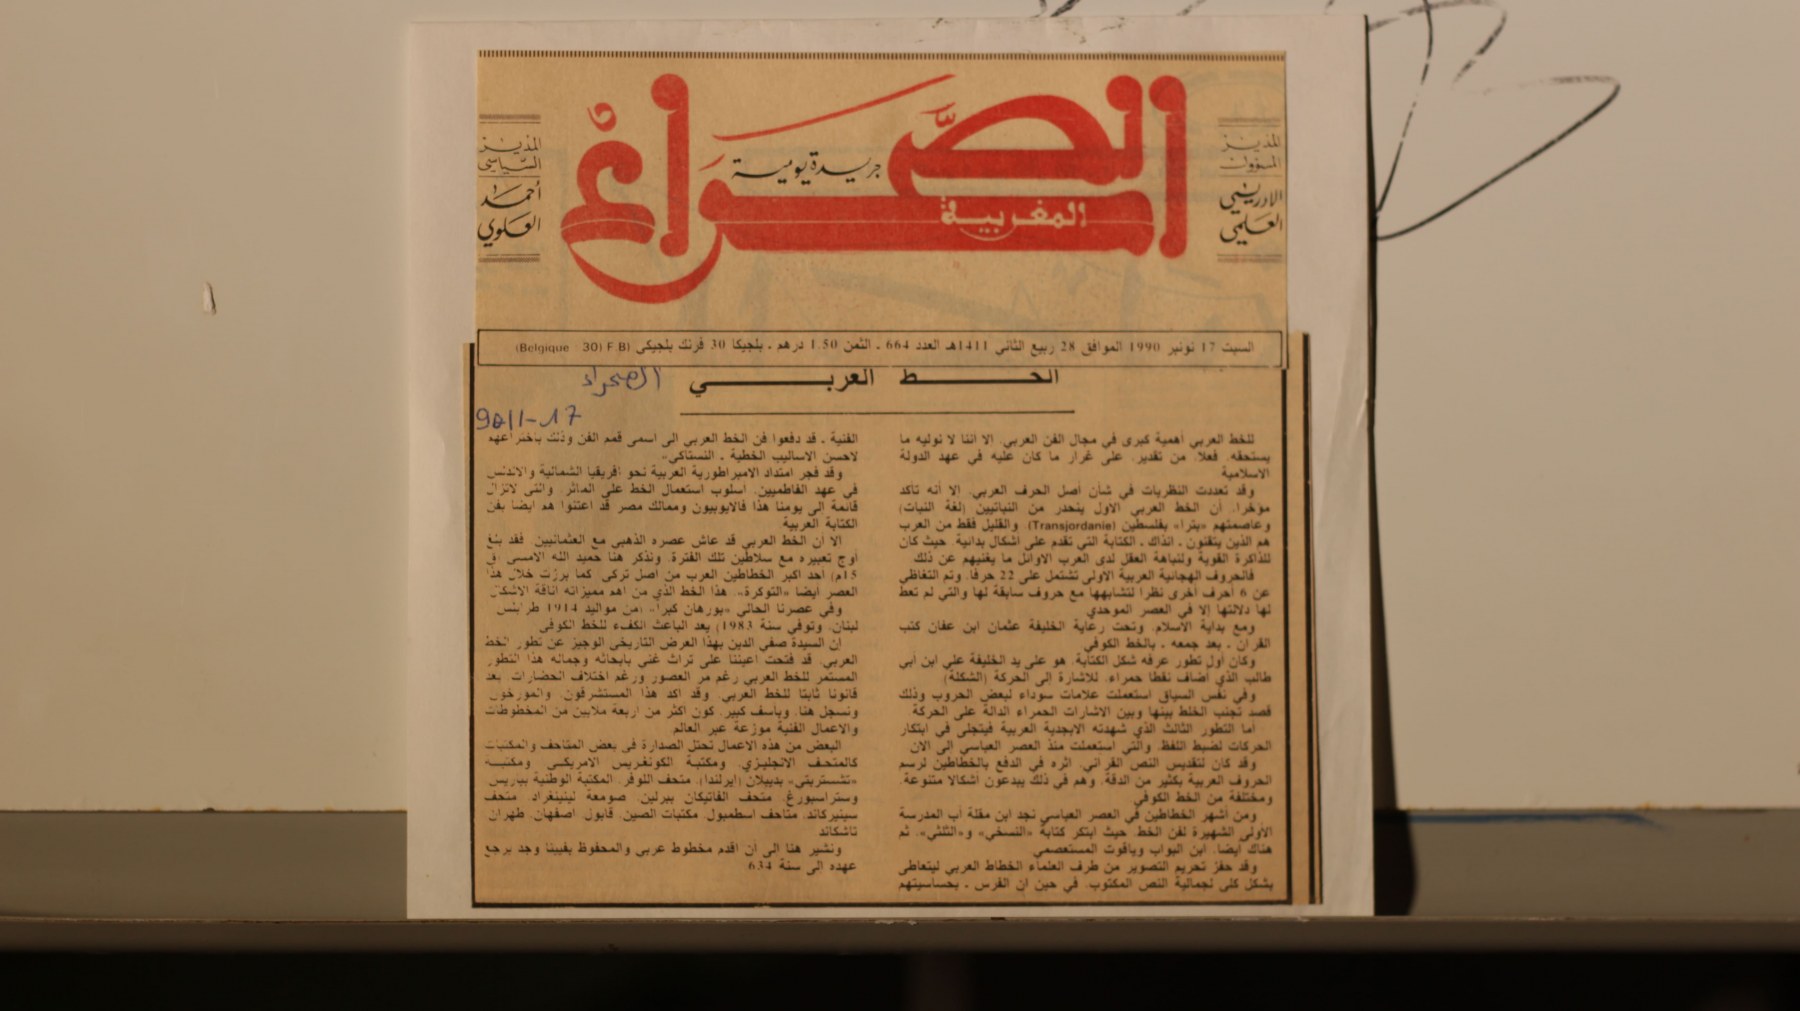 الصحراء
المغربية
جريدة يومية
المدير
المسؤول
الادريسي
العلمي
المدير
السياسي
أحمد
العلوي
السبت 17 نونبر 1990 الموافق 28 ربيع الثاني 1411هـ العدد 664 ـ الثمن 1.50 درهم ـ بلجيكا 30 فرنك بلجيكي (Belgique : 30) F.B)
الخط العربي
الصحراء
17-11-90
للخط العربي أهمية كبرى في مجال الفن العربي. الا اننا لا نوليه ما
يستحقه. فعلا، من تقدير. على غرار ما كان عليه في عهد الدولة
الاسلامية
وقد تعددت النظريات في شأن أصل الحرف العربي. إلا أنه تأكد
مؤخرا. أن الخط العربي الاول ينحدر من النباتيين (لغة النبات)
وعاصمتهم «بترا» بفلسطين (Transjordanie) والقليل فقط من العرب
هم الذين يتقنون ـ انذاك ـ الكتابة التي تقدم على أشكال بدائية. حيث كان
للذاكرة القوية ولنباهة العقل لدى العرب الاوائل ما يغنيهم عن ذلك
فالحروف الهجائية العربية الاولى تشتمل على 22 حرفا. وتم التغاظي
عن 6 أحرف أخرى نظرا لتشابهها مع حروف سابقة لها والتي لم تعط
لها دلالتها إلا في العصر الموحدي
ومع بداية الاسلام. وتحت رعاية الخليفة عثمان ابن عفان كتب
القرآن ـ بعد جمعه ـ بالخط الكوفي
وكان أول تطور عرفه شكل الكتابة. هو على يد الخليفة علي ابن أبي
طالب الذي أضاف نقطا حمراء. للاشارة إلى الحركة (الشكلة)
وفي نفس السياق استعملت علامات سوداء لبعض الحروب وذلك
قصد تجنب الخلط بينها وبين الاشارات الحمراء الدالة على الحركة
أما التطور الثالث الذي شهدته الابجدية العربية فيتجلى في ابتكار
الحركات لضبط اللفظ. والتي استعملت منذ العصر العباسي إلى الآن
وقد كان لتقديس النص القرآني. اثره في الدفع بالخطاطين لرسم
الحروف العربية بكثير من الدقة. وهم في ذلك يبدعون أشكالا متنوعة.
ومختلفة من الخط الكوفي
ومن أشهر الخطاطين في العصر العباسي نجد ابن مقلة أب المدرسة
الأولى الشهيرة لفن الخط. حيث ابتكر كتابة «النسخي» و«الثلثي». ثم
هناك أيضا. ابن البواب وياقوت المستعصمي
وقد حفز تحريم التصوير من طرف العلماء الخطاط العربي ليتعاطى
بشكل كلي لجمالية النص المكتوب. في حين ان الفرس ـ بحساسيتهم
الفنية ـ قد دفعوا فن الخط العربي الى اسمى قمم الفن وذلك باختراعهم
لاحسن الاساليب الخطية ـ النستاكي»
وقد فجر امتداد الامبراطورية العربية نحو إفريقيا الشمالية والاندلس
في عهد الفاطميين. أسلوب استعمال الخط على المآثر. والتي لاتزال
قائمة إلى يومنا هذا فالايوبيون وممالك مصر قد اعتنوا هم أيضا بفن
الكتابة العربية
الا أن الخط العربي قد عاش عصره الذهبي مع العثمانيين. فقد بلغ
أوج تعبيره مع سلاطين تلك الفترة. ونذكر هنا حميد الله الامسي (ق
15م) أحد اكبر الخطاطين العرب من أصل تركي. كما برزت خلال هذا
العصر أيضا «التوكرة». هذا الخط الذي من أهم مميزاته أناقة الاشكال
وفي عصرنا الحالي «بورهان كيرا» (من مواليد 1914 طرابلس
لبنان. وتوفي سنة 1983) يعد الباعث الكفء للخط الكوفي
إن السيدة صفي الدين بهذا العرض التاريخي الوجيز عن تطور الخط
العربي. قد فتحت أعيننا على تراث غني بأبحاثه وجماله هذا التطور
المستمر للخط العربي رغم مر العصور ورغم اختلاف الحضارات. يعد
قانونا ثابتا للخط العربي. وقد أكد هذا المستشرقون. والمورخون
ونسجل هنا. وبأسف كبير. كون أكثر من أربعة ملايين من المخطوطات
والاعمال الفنية موزعة عبر العالم
البعض من هذه الاعمال تحتل الصدارة في بعض المتاحف والمكتبات
كالمتحف الانجليزي. ومكتبة الكونغريس الامريكي. ومكتبة
«تشستربتي» بدبيلان (إيرلندا). متحف اللوفر. المكتبة الوطنية بباريس
وستراسبورغ. متحف الفاتيكان ببرلين. صومعة لينينغراد. متحف
سينيركاند. متاحف اسطمبول. مكتبات الصين. قابول. اصفهان. طهران.
تاشكاند
ونشير هنا إلى أن أقدم مخطوط عربي والمحفوظ بفيينا وجد يرجع
عهده إلى سنة 634